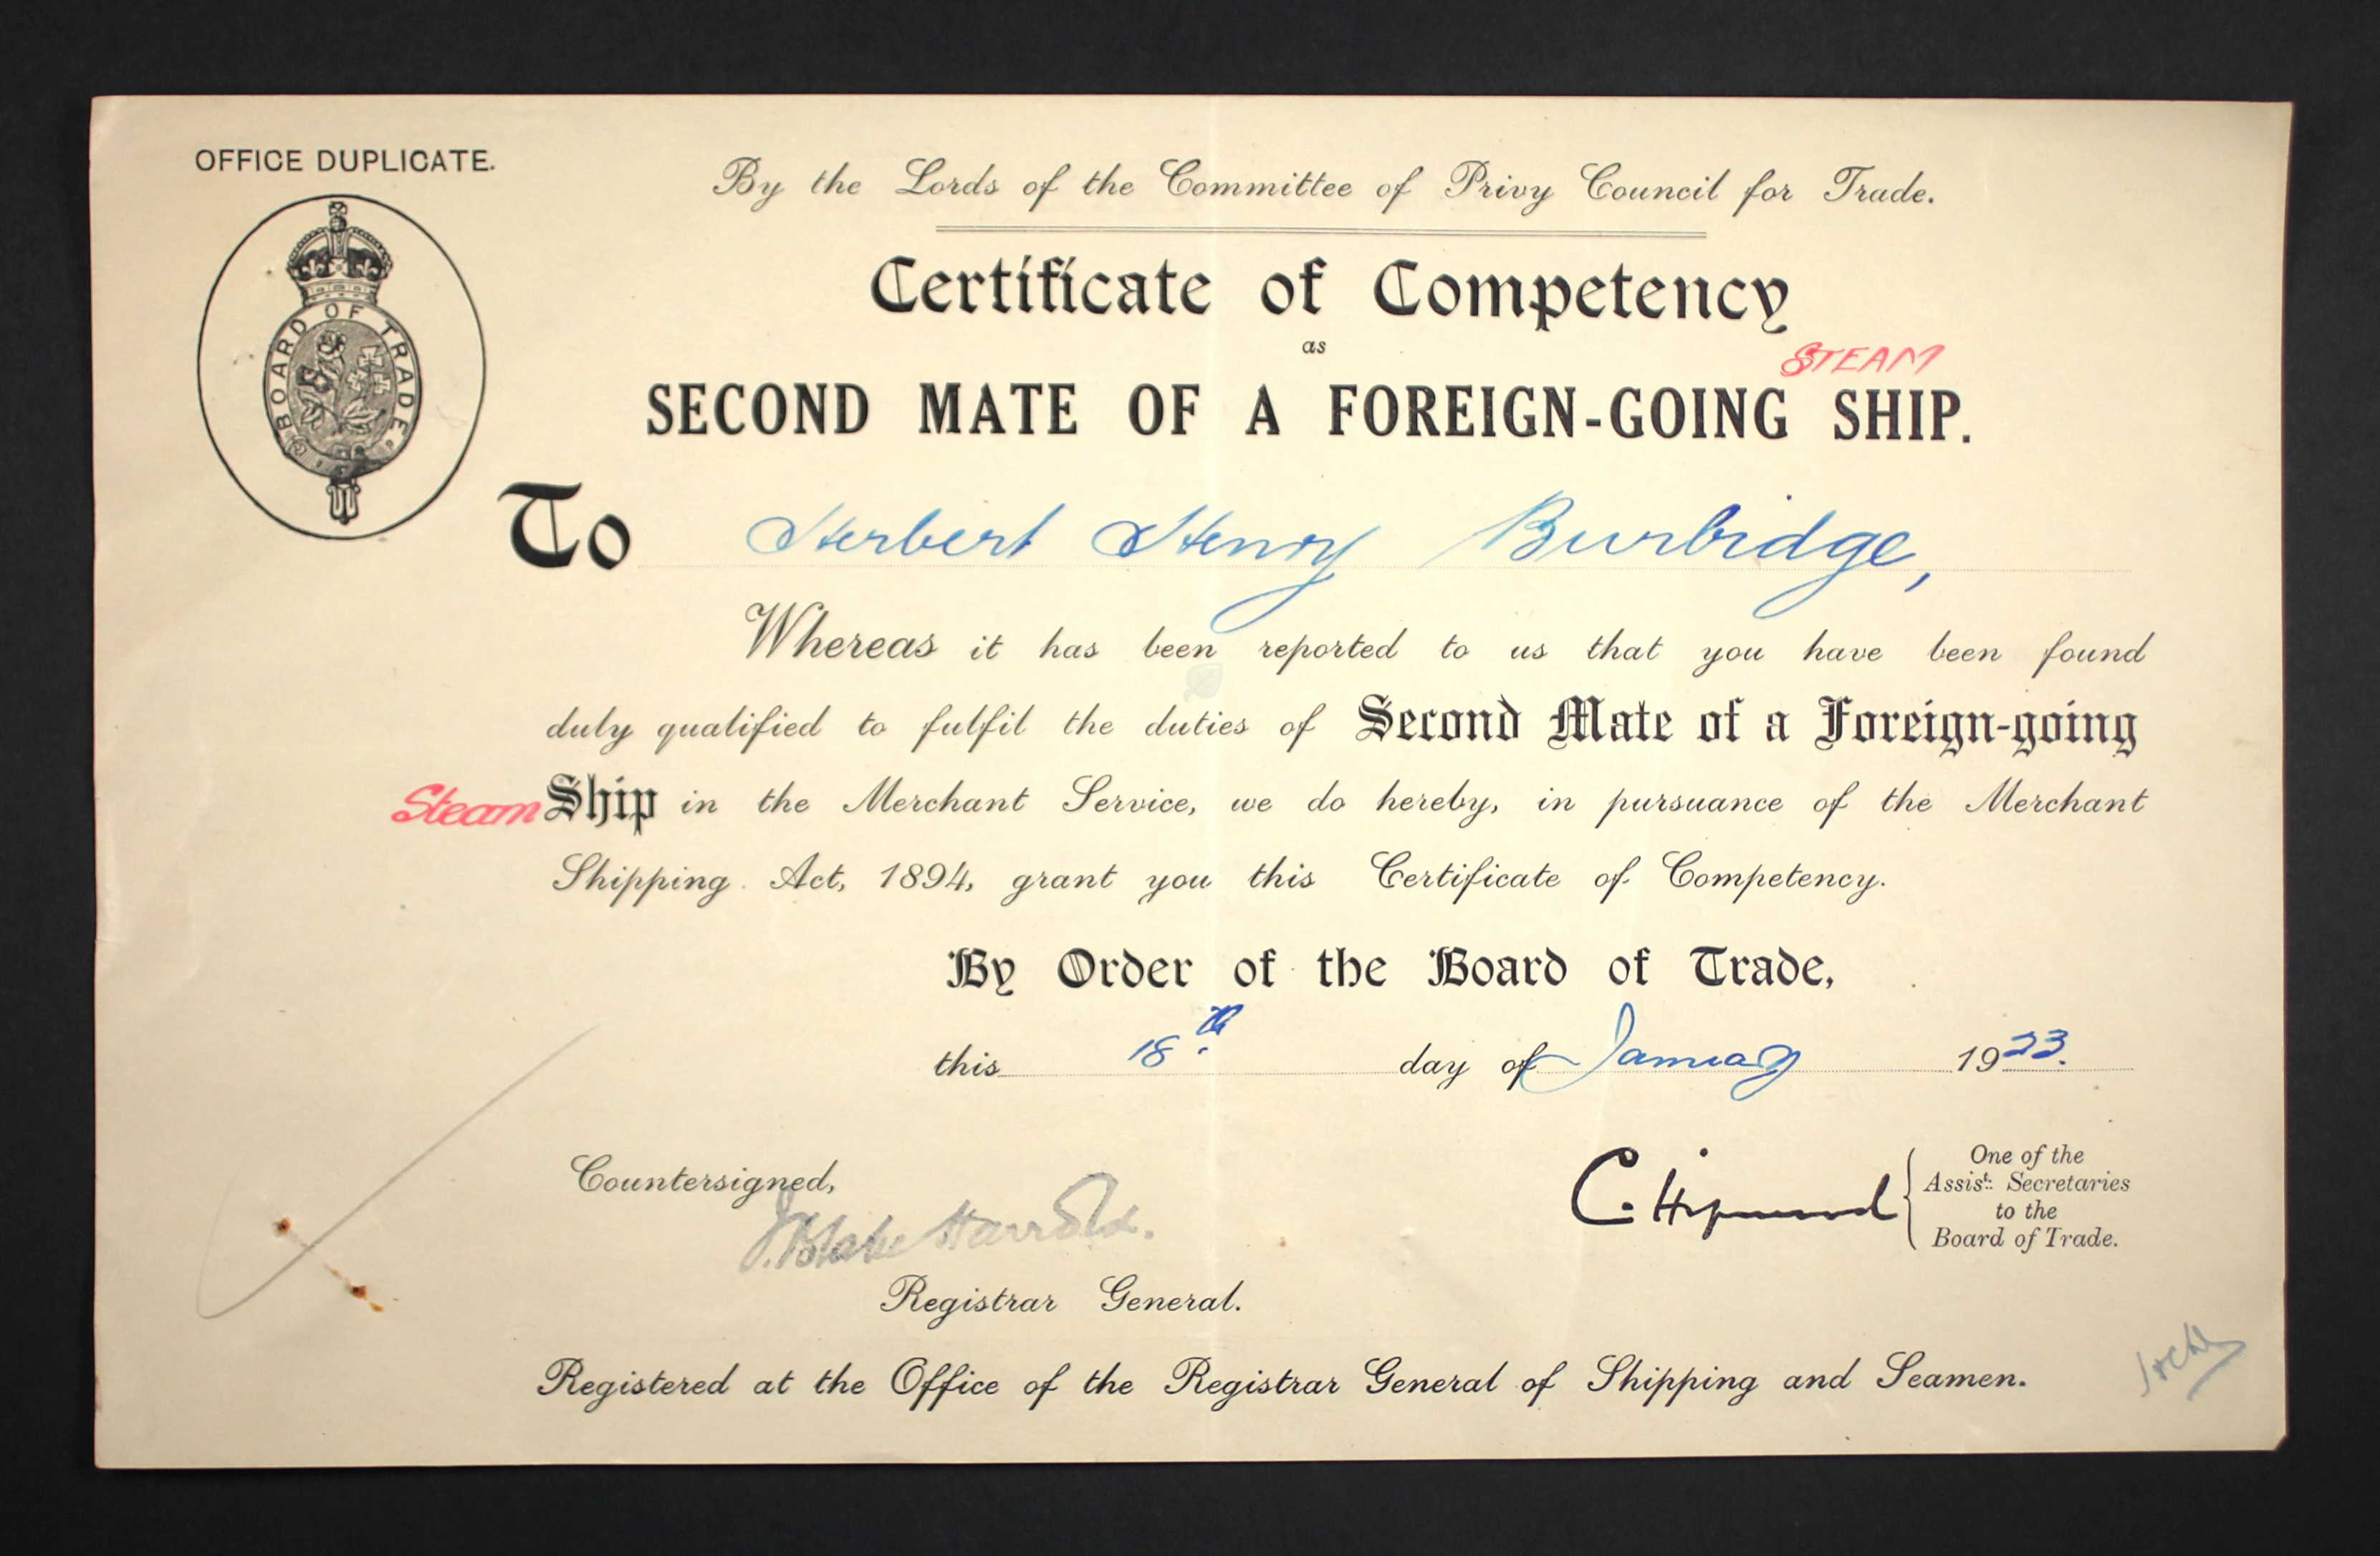 OFFICE DUPLICATE.
BOARD OF TRADE
By the Lords of the Committee of Privy Council for Trade.
Certificate of Competency
as
STEAM
SECOND MATE OF A FOREIGN-GOING SHIP.
To Herbert Henry Burbidge,
Whereas it has been reported to us that you have been found
duly qualified to fulfil the duties of Second Mate of a Foreign-going
Steam Ship in the Merchant Service, we do hereby, in pursuance of the Merchant
Shipping Act, 1894, grant you this Certificate of Competency.
By Order of the Board of Trade,
this 18th day of January 1923.
Countersigned,
J. Blake Harrold.
C. Hipwood
One of the
Assist: Secretaries
to the
Board of Trade.
Registrar General.
Registered at the Office of the Registrar General of Shipping and Seamen.